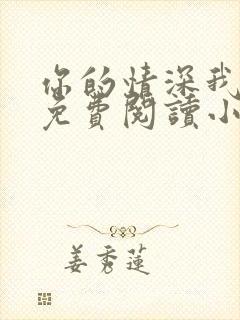 你的情深我
免費閱讀小
姜秀蓮